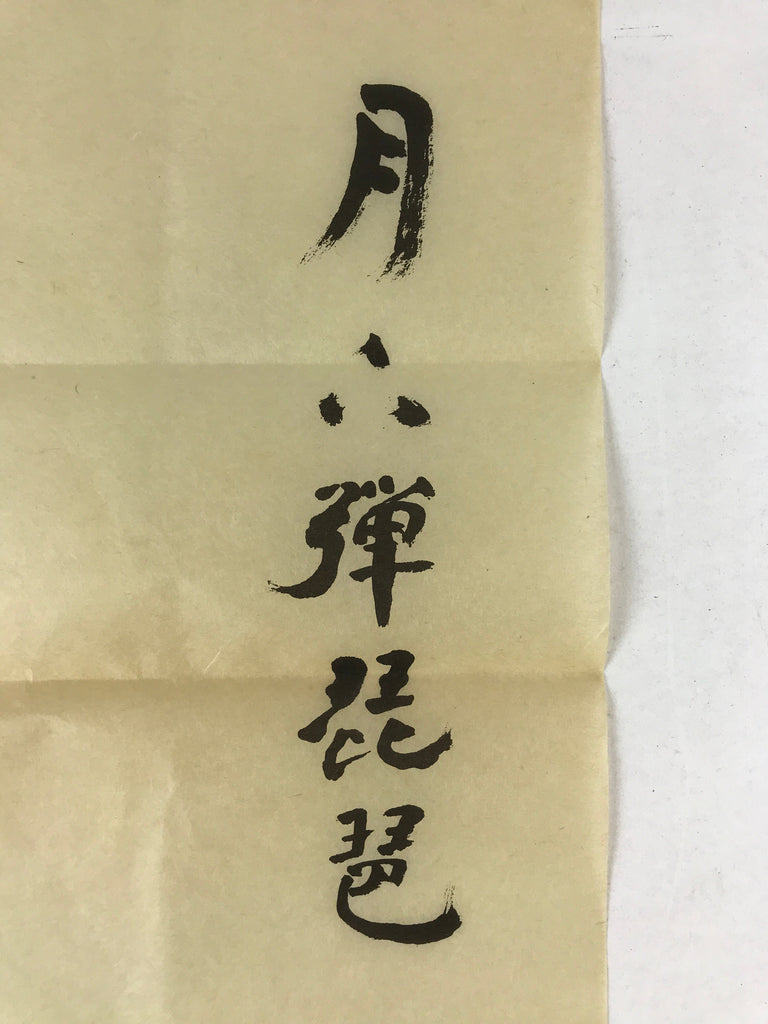 月下弾琵琶